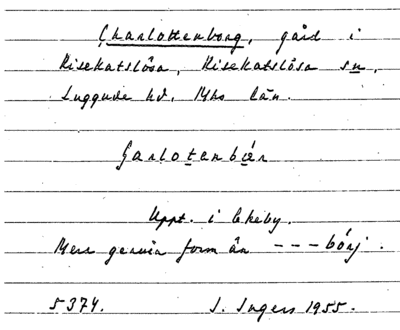 Charlottenborg, gård i
Risekatslösa, Risekatslösa sn,
Luggude hd. Mhs län.
Sarlotanbär
Uppt. i Ekeby.
Mera genuin form än ---bórj.
5374. I. Ingers 1955.